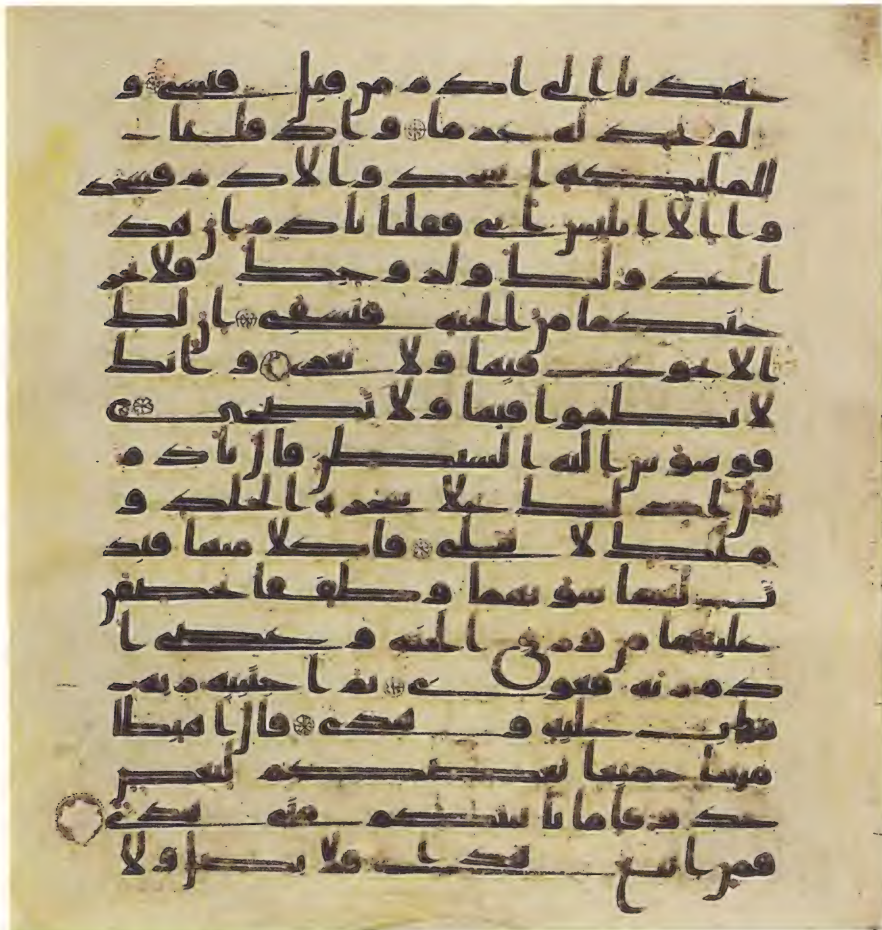 عهدنا الى ادم من قبل فنسى و
لم نجد له عزما واذ قلنا
للمليكه اسجدوا لادم فسجد
وا الا ابليس ابى فقلنا يادم ان هذ
ا عدو لك ولزوجك فلا يخر
جنكما من الجنه فتشقى ان لك
الا تجوع فيها ولا تعرى وانك
لا تظموا فيها ولا تضحى
فوسوس اليه الشيطن قال يادم
هل ادلك على شجره الخلد و
ملك لا يبلى فاكلا منها فبد
ت لهما سوتهما وطفقا يخصفن
عليهما من ورق الجنه وعصى ا
دم ربه فغوى ثم اجتبيه ربه
فتاب عليه وهدى قال اهبطا
منها جميعا بعضكم لبعض
عدو فاما ياتينكم منى هدى
فمن اتبع هداى فلا يضل ولا